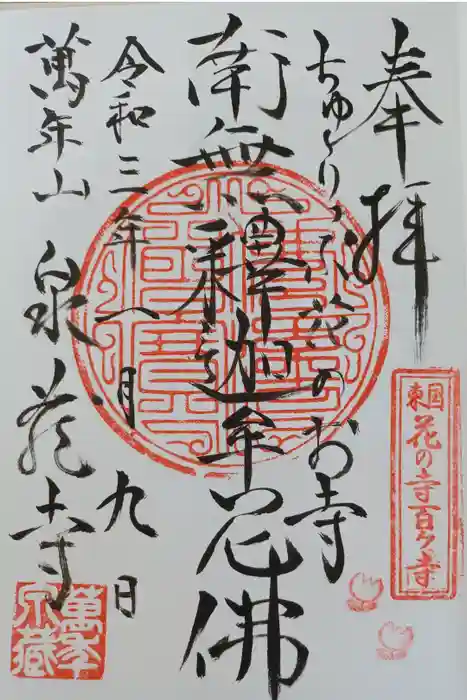 奉拝
東国花の寺百ヶ寺
ちゅーりっぷ花のお寺
南無釋迦牟尼佛
令和三年一月九日
萬年山 泉蔵寺
萬年泉蔵